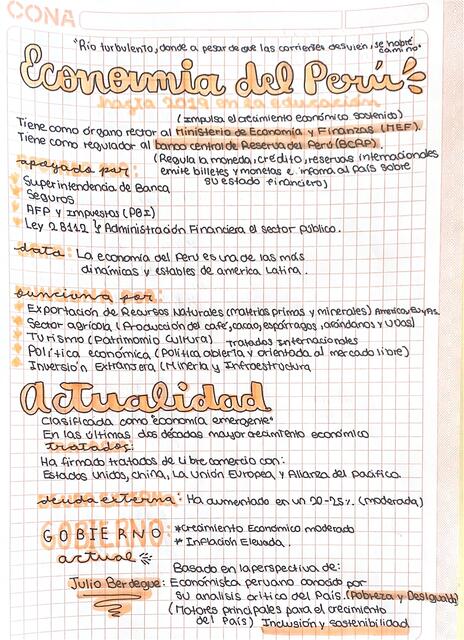 CONA
"Rio turbulento, donde a pesar de que las corrientes desvien, se habré camino"
Economia del Perú
hasta 2019 en la educación
(Impulsa el crecimiento económico sostenido)
Tiene como órgano rector al Ministerio de Economía y Finanzas (MEF).
Tiene como regulador al banco central de Reserva del Perú (BCRP).
(Regula la moneda, crédito, reservas internacionales
apoyado por: emite billetes y monetas e informa al país sobre
Superintendencia de Banca su estado financiero)
Seguros
AFP y Impuestos (PBI)
Ley 28112 } Administración Financiera el sector público.
data: La economía del Perú es una de las más
dinámicas y estables de america Latina.
funciona por:
Exportación de Recursos Naturales (Materias primas y minerales)
Sector agrícola (Producción del café, cacao, espárragos, arándanos y uvas)
Turismo (Patrimonio Cultura) Tratados Internacionales
Política económica (Política abierta y orientada al mercado libre)
Inversión Extranjera (Minería y Infraestructura
Actualidad
Clasificada como "economía emergente"
En las últimas dos décadas mayor crecimiento económico
tratados:
Ha firmado tratados de Libre comercio con:
Estados Unidos, China, La Unión Europea y Alianza del Pacífico.
deuda externa: Ha aumentado en un 20-25%. (moderada)
GOBIERNO: *Crecimiento Económico moderado
* Inflación Elevada.
actual
Basado en la perspectiva de:
Julio Berdegue: Economista peruano conocido por
su analisis critico del País. (Pobreza y Desigualdad)
(Motores principales para el crecimiento
del País) Inclusión y sostenibilidad